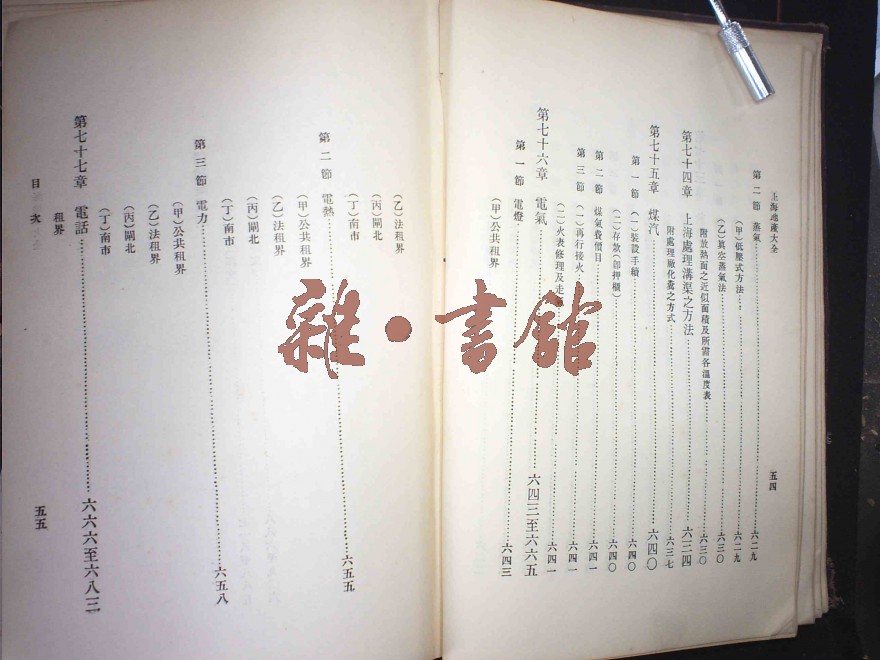 上海地產大全
五四
第二節 蒸氣……六二九
(甲)低壓式方法……六二九
(乙)真空蒸氣法……六三〇
附放熱面之近似面積及所需各溫度表……六三〇
第七十四章 上海處理溝渠之方法……六三四
附處理廠化糞之方式……六三七
第七十五章 煤汽……六四〇
第一節 (一)裝設手續……六四〇
(二)存款(卽押櫃)……六四〇
第二節 煤氣費價目……六四一
第三節 (一)再行接火……六四一
(二)火表修理及走……六四一
第七十六章 電氣……六四三至六六五
第一節 電燈……六四三
(甲)公共租界
(乙)法租界
(丙)閘北
(丁)南市
第二節 電熱……六五五
(甲)公共租界
(乙)法租界
(丙)閘北
(丁)南市
第三節 電力……六五八
(甲)公共租界
(乙)法租界
(丙)閘北
(丁)南市
第七十七章 電話……六六六至六八三
租界
目次
五五
雜·書館